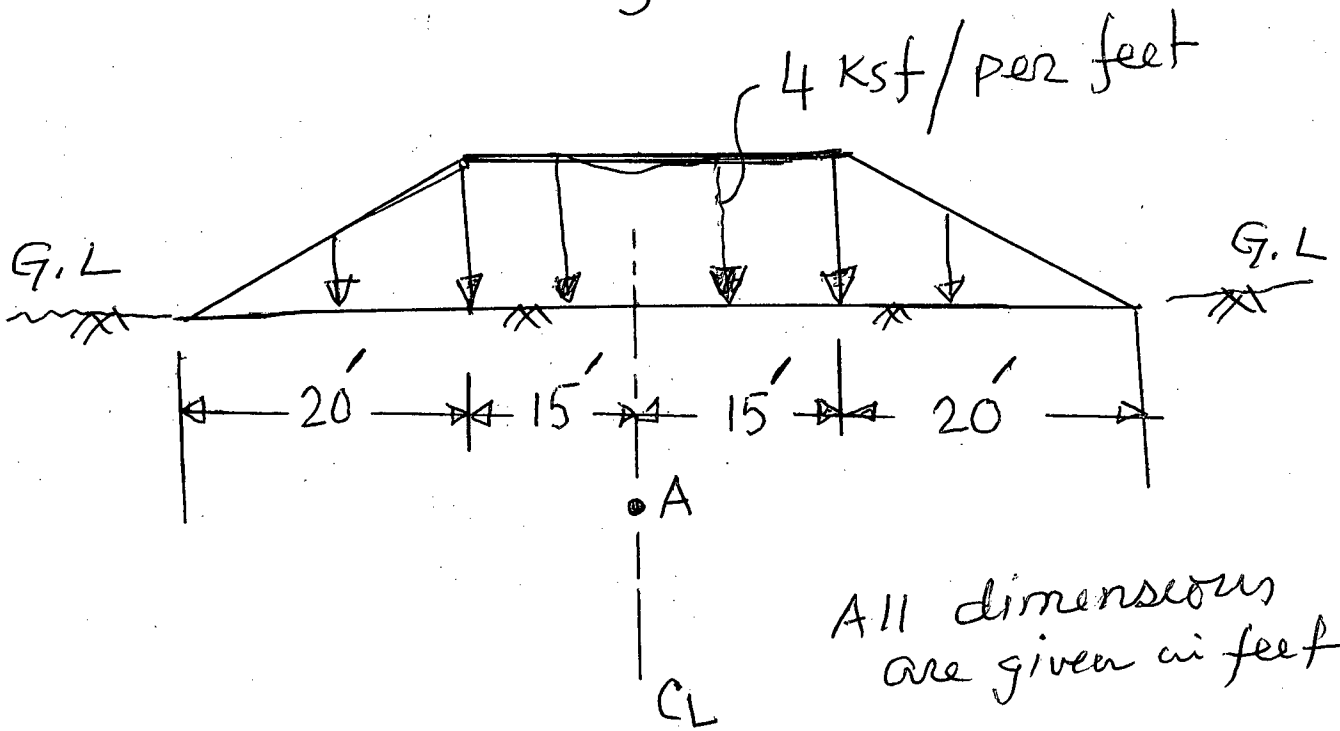 4 Ksf/per feet
G.L
G.L
20' 15' 15' 20'
A
All dimensions
are given in feet
CL